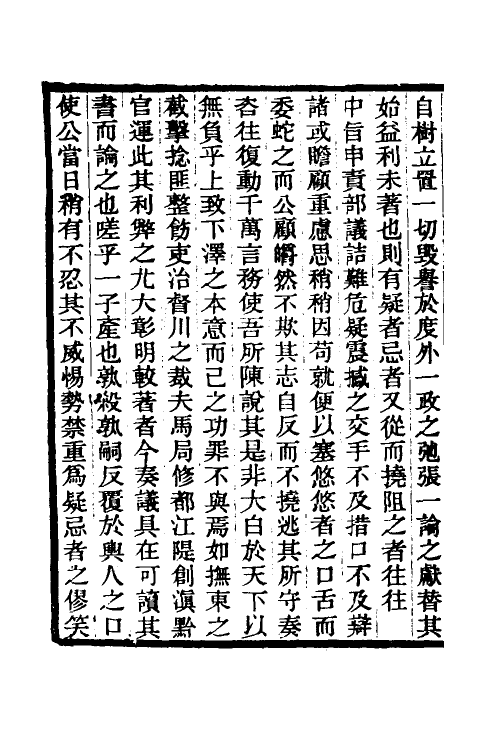 自樹立置一切毀譽於度外一政之弛張一論之獻替其
始益利未著也則有疑者忌者又從而撓阻之者往往
中旨申責部議詰難危疑震撼之交手不及措口不及辯
諸或瞻顧重慮思稍稍因苟就便以塞悠悠者之口舌而
委蛇之而公顧皭然不欺其志自反而不撓逃其所守奏
咨往復動千萬言務使吾所陳說其是非大白於天下以
無負乎上致下澤之本意而己之功罪不與焉如撫東之
截擊捻匪整飭吏治督川之裁夫馬局修都江隄創滇黔
官運此其利弊之尤大彰明較著者今奏議具在可讀其
書而論之也嗟乎一子產也孰殺孰嗣反覆於輿人之口
使公當日稍有不忍其不威惕勢禁重為疑忌者之僇笑